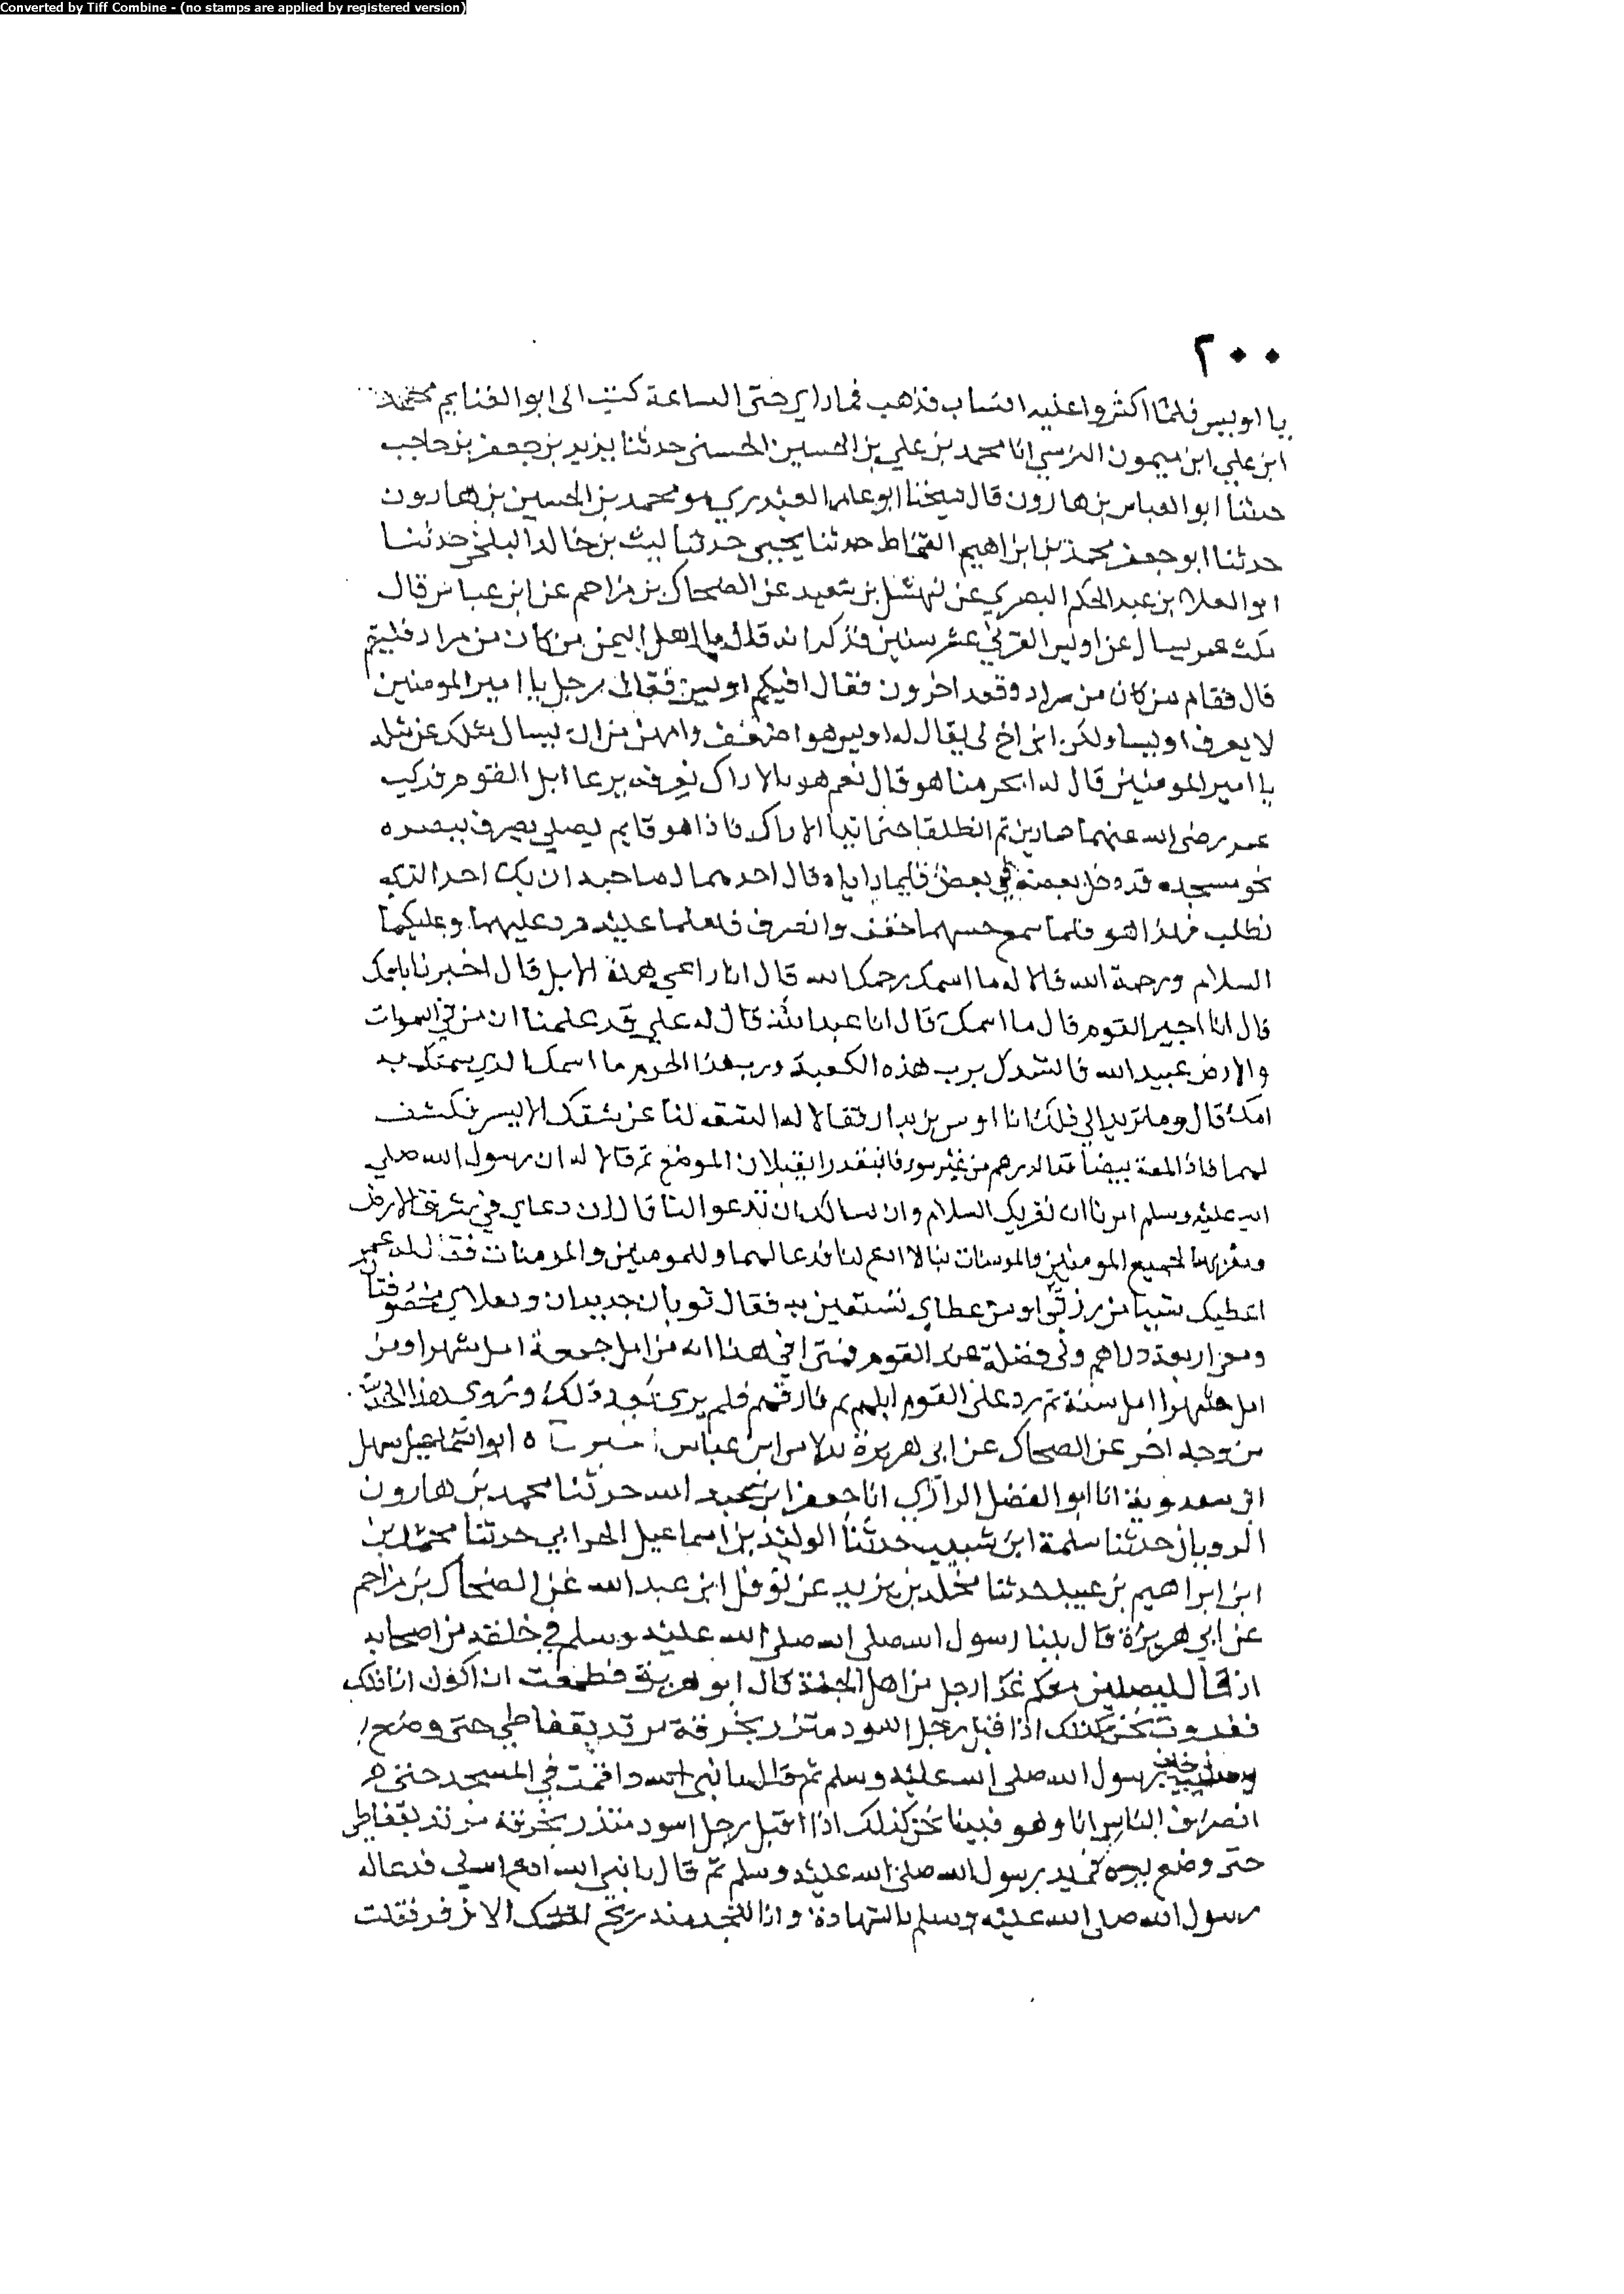 Converted by Tiff Combine - (no stamps are applied by registered version)
٢٠٠
يا اويس فلما اكثروا عليه انساب فذهب فما راى حتى الساعة كتب الى ابو الغنايم محمد
ابن علي ابن ميمون النرسي انا محمد بن علي بن الحسين الحسني حدثنا يزيد بن جعفر بن حاجب
حدثنا ابو العباس بن هارون قال شيخنا ابو عامر العبدري هو محمد بن الحسين بن هارون
حدثنا ابو جعفر محمد بن ابراهيم القماط حدثنا يحيى حدثنا ليث بن خالد البلخي حدثنا
ابو العلاء بن عبد الحكم البصري عن نهشل بن سعيد عن الضحاك بن مزاحم عن ابن عباس قال
مكث عمر يسال عن اويس القرني عشر سنين فذكر انه قال يا اهل اليمن من كان من مراد فليقم
قال فقام من كان من مراد وقعد اخرون فقال افيكم اويس فقال رجل يا امير المومنين
لا يعرف اويسا ولكن ابن اخ لى يقال له اويس هو اضعف وامهن من ان يسال مثلك عن مثله
يا امير المومنين قال له ابحرمنا هو قال نعم هو بالاراك بعرفه يرعا ابل القوم فركب
عمر رضى الله عنهما حمارين ثم انطلقا حتى اتيا الاراك فاذا هو قايم يصلي يضرف ببصره
نحو مسجده قد دخل بعضه في بعض فلما راياه قال احدهما لصاحبه ان يك احد الذي
نطلب فهذا هو فلما سمع حسهما خفف وانصرف فسلما عليه فرد عليهما وعليكما
السلام ورحمة الله قالا له ما اسمك رحمك الله قال انا راعي هذه الابل قال اخبرنا باسمك
قال انا اجير القوم قال ما اسمك قال انا عبد الله قال له علي قد علمنا ان من في السموات
والارض عبيد الله فانشدك برب هذه الكعبة ورب هذا الحرم ما اسمك الذي سمتك به
امك قال وما تريد الى ذلك انا اويس بن بدار فقالا له اكشف لنا عن شقك الايسر فكشف
لهما فاذا لمعة بيضا قدر الدرهم من غير سوء فابتدرا يقبلان الموضع ثم قالا له ان رسول الله صلي
الله عليه وسلم امرنا ان نقريك السلام وان نسالك ان تدعو لنا قال ان دعاي في شرق الارض
وغربها لجميع المومنين والمومنات قالا ادع لنا فدعا لهما وللمومنين والمومنات فقال له عمر
اعطيك شيا من رزقي او من عطاي تستعين به فقال ثوبان جديدان ونعلاي مخصوفتان
ومعي اربعة دراهم ولى فضلة عند القوم فمتى افني هذا انه من امل جمعة امل شهرا ومن
امل شهرا امل سنة ثم رد على القوم ابلهم ثم فارقهم فلم يرى بعد ذلك وتروى هذا الحديث
من وجه اخر عن الضحاك عن ابى هريرة بدلا من ابن عباس اخبرناه ابو اسماعيل سهل
ابن سعدويه انا ابو الفضل الرازي انا جعفر ابن عبد الله حدثنا محمد بن هارون
الرويان حدثنا سلمة ابن شبيب حدثنا الوليد بن اسماعيل الحراني حدثنا محمد بن
ابن ابراهيم بن عبيد حدثنا مخلد بن يزيد عن نوفل ابن عبد الله عن الضحاك بن مزاحم
عن ابي هريرة قال بينا رسول الله صلى الله صلى الله عليه وسلم في حلقه من اصحابه
اذ قال ليصلين معكم غدا رجل من اهل الجنة قال ابو هريرة فطمعت ان اكون انا ذلك
فغدوت نحن كذلك اذا قبل رجل اسود متزر بخرقة مرتد بقفاطي حتى وضع
رسول الله صلى الله عليه وسلم ثم قال يا نبى الله واقمت في المسجد حتى
انصرف الناس انا وهو فبينا نحن كذلك اذا اقبل رجل اسود متذر بخرقة مرتد بقفاطي
حتى وضع يده في يد رسول الله صلى الله عليه وسلم ثم قال يا نبي الله ادع الله لي فدعا له
رسول الله صلى الله عليه وسلم بالشهادة وانا لنجد منه ريح المسك الاذفر فقلت